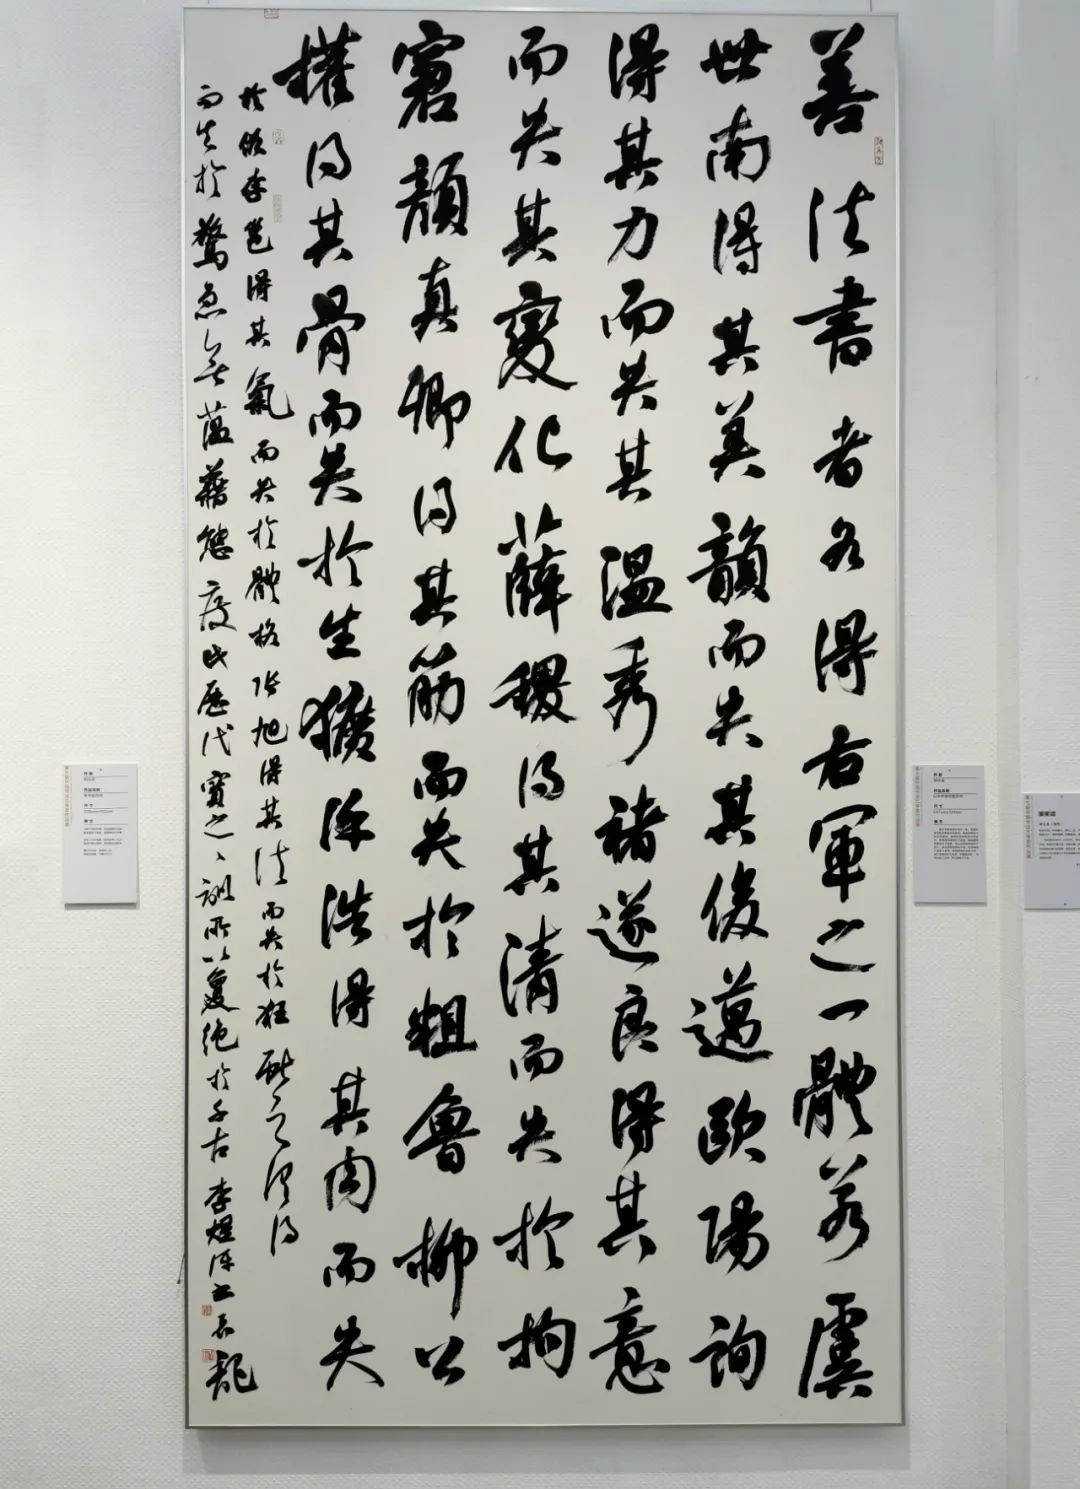 善法書者各得右軍之一體若虞
世南得其美韻而失其俊邁歐陽詢
得其力而失其温秀褚遂良得其意
而失其變化薛稷得其清而失於拘
窘顏真卿得其筋而失於粗魯柳公
權得其骨而失於生獷徐浩得其肉而失
於俗李邕得其氣而失於體格張旭得其法而失於狂獻之俱得
而失於驚急無藴藉態度此歷代寶之之訓所以敻絶於千古 李煜評書 長龍